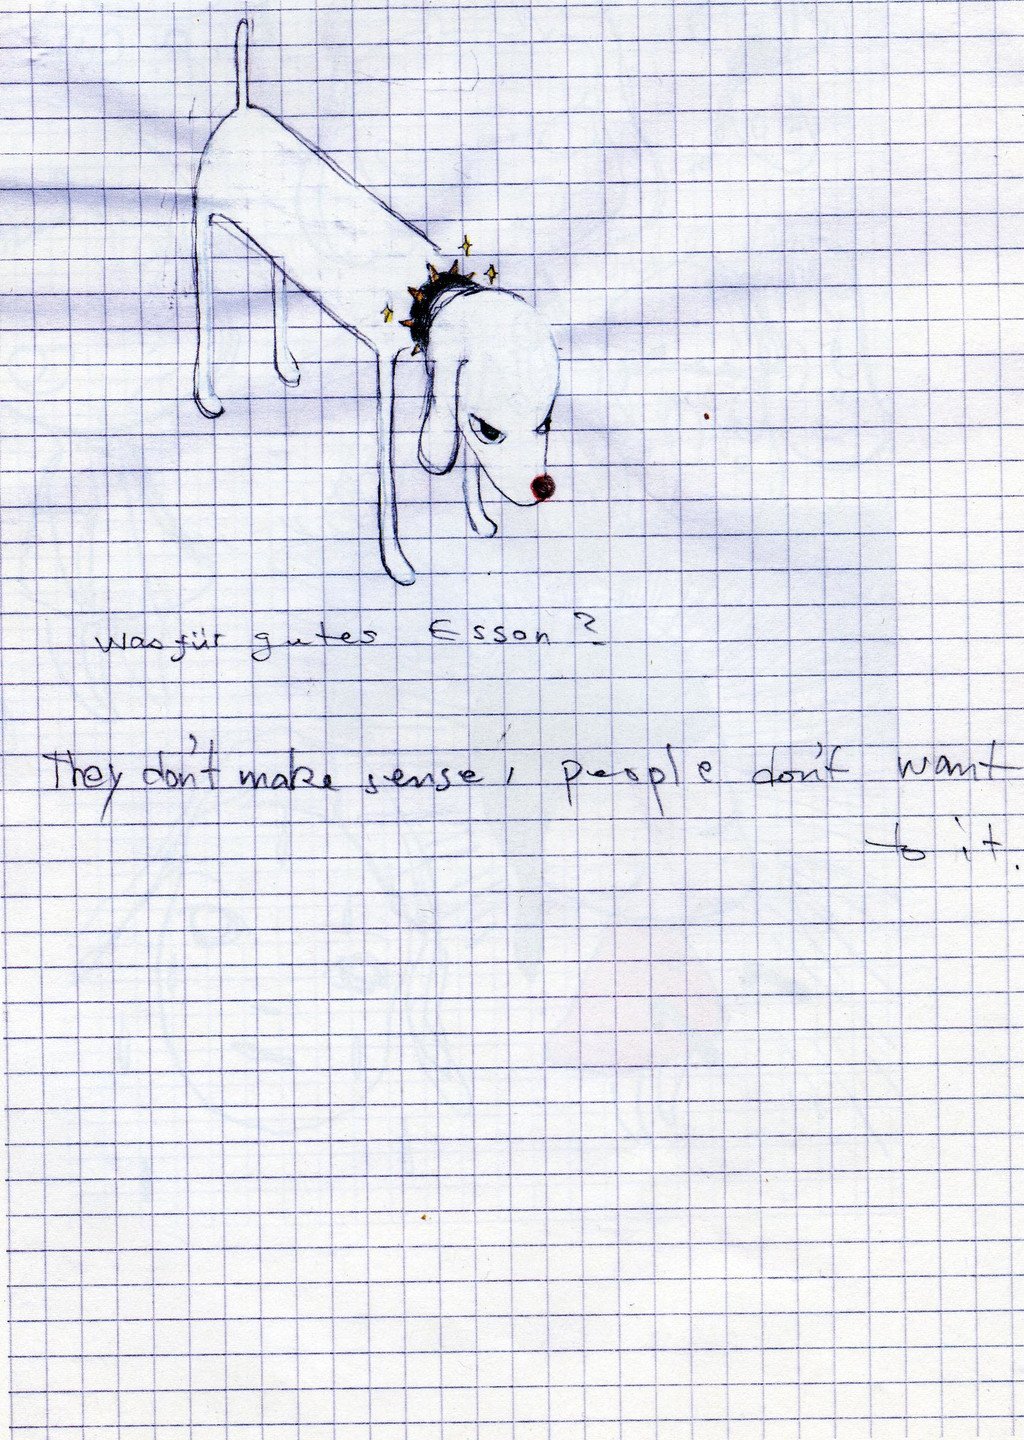 Was für gutes Esson?
They don't make sense, people don't want
to it.